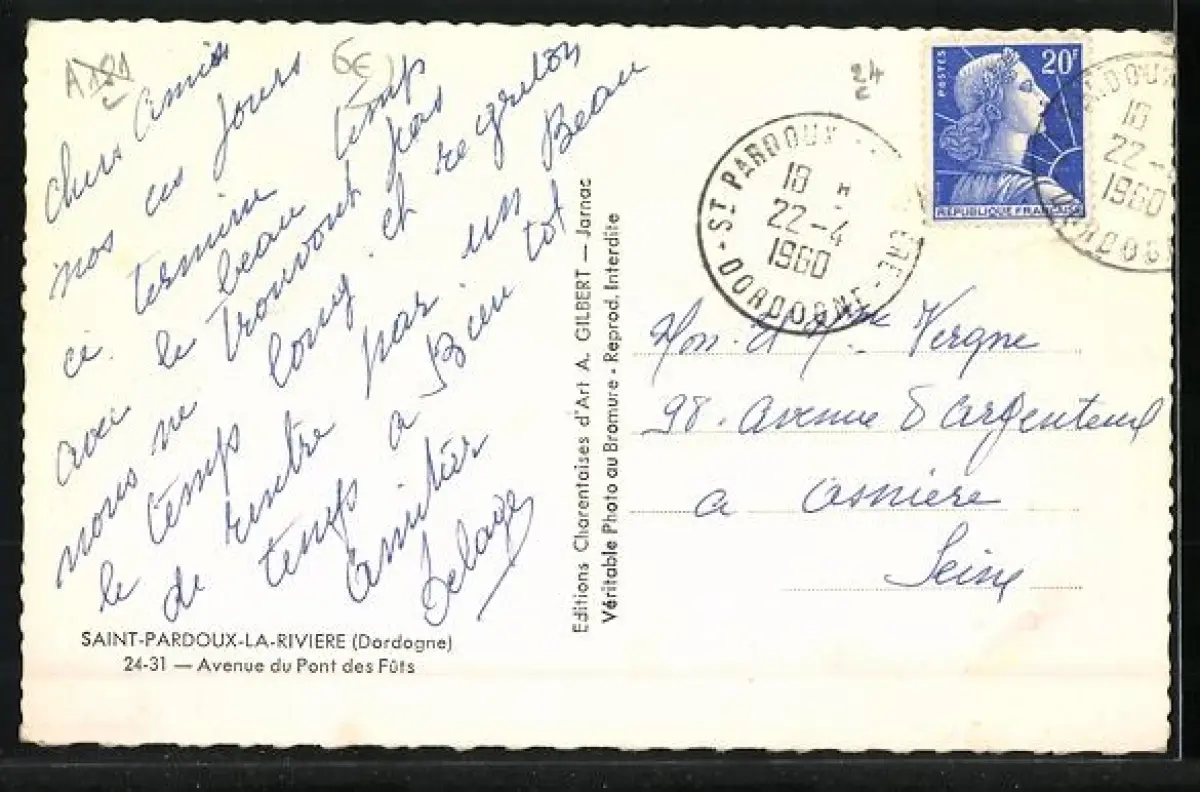 A 181
6€
24
Chers Amis
nos ces jours
ci termine
avec le beau temp
nous ne trouvont pas
le temps long et regreton
de rentre par un Beau
temps a Bien tot
Amitiér
Delage
SAINT-PARDOUX-LA-RIVIERE (Dordogne)
24-31 — Avenue du Pont des Fûts
Editions Charentaises d'Art A. GILBERT — Jarnac
Véritable Photo au Bromure - Reprod. Interdite
POSTES
20F
REPUBLIQUE FRANÇAISE
ST PARDOUX
18 H
22-4
1960
DORDOGNE
PARDOUX
18
22-
1960
DORDOGN
Mon. et Mme Vergne
98. Avenue d'Argenteuil
a Asniere
Seine